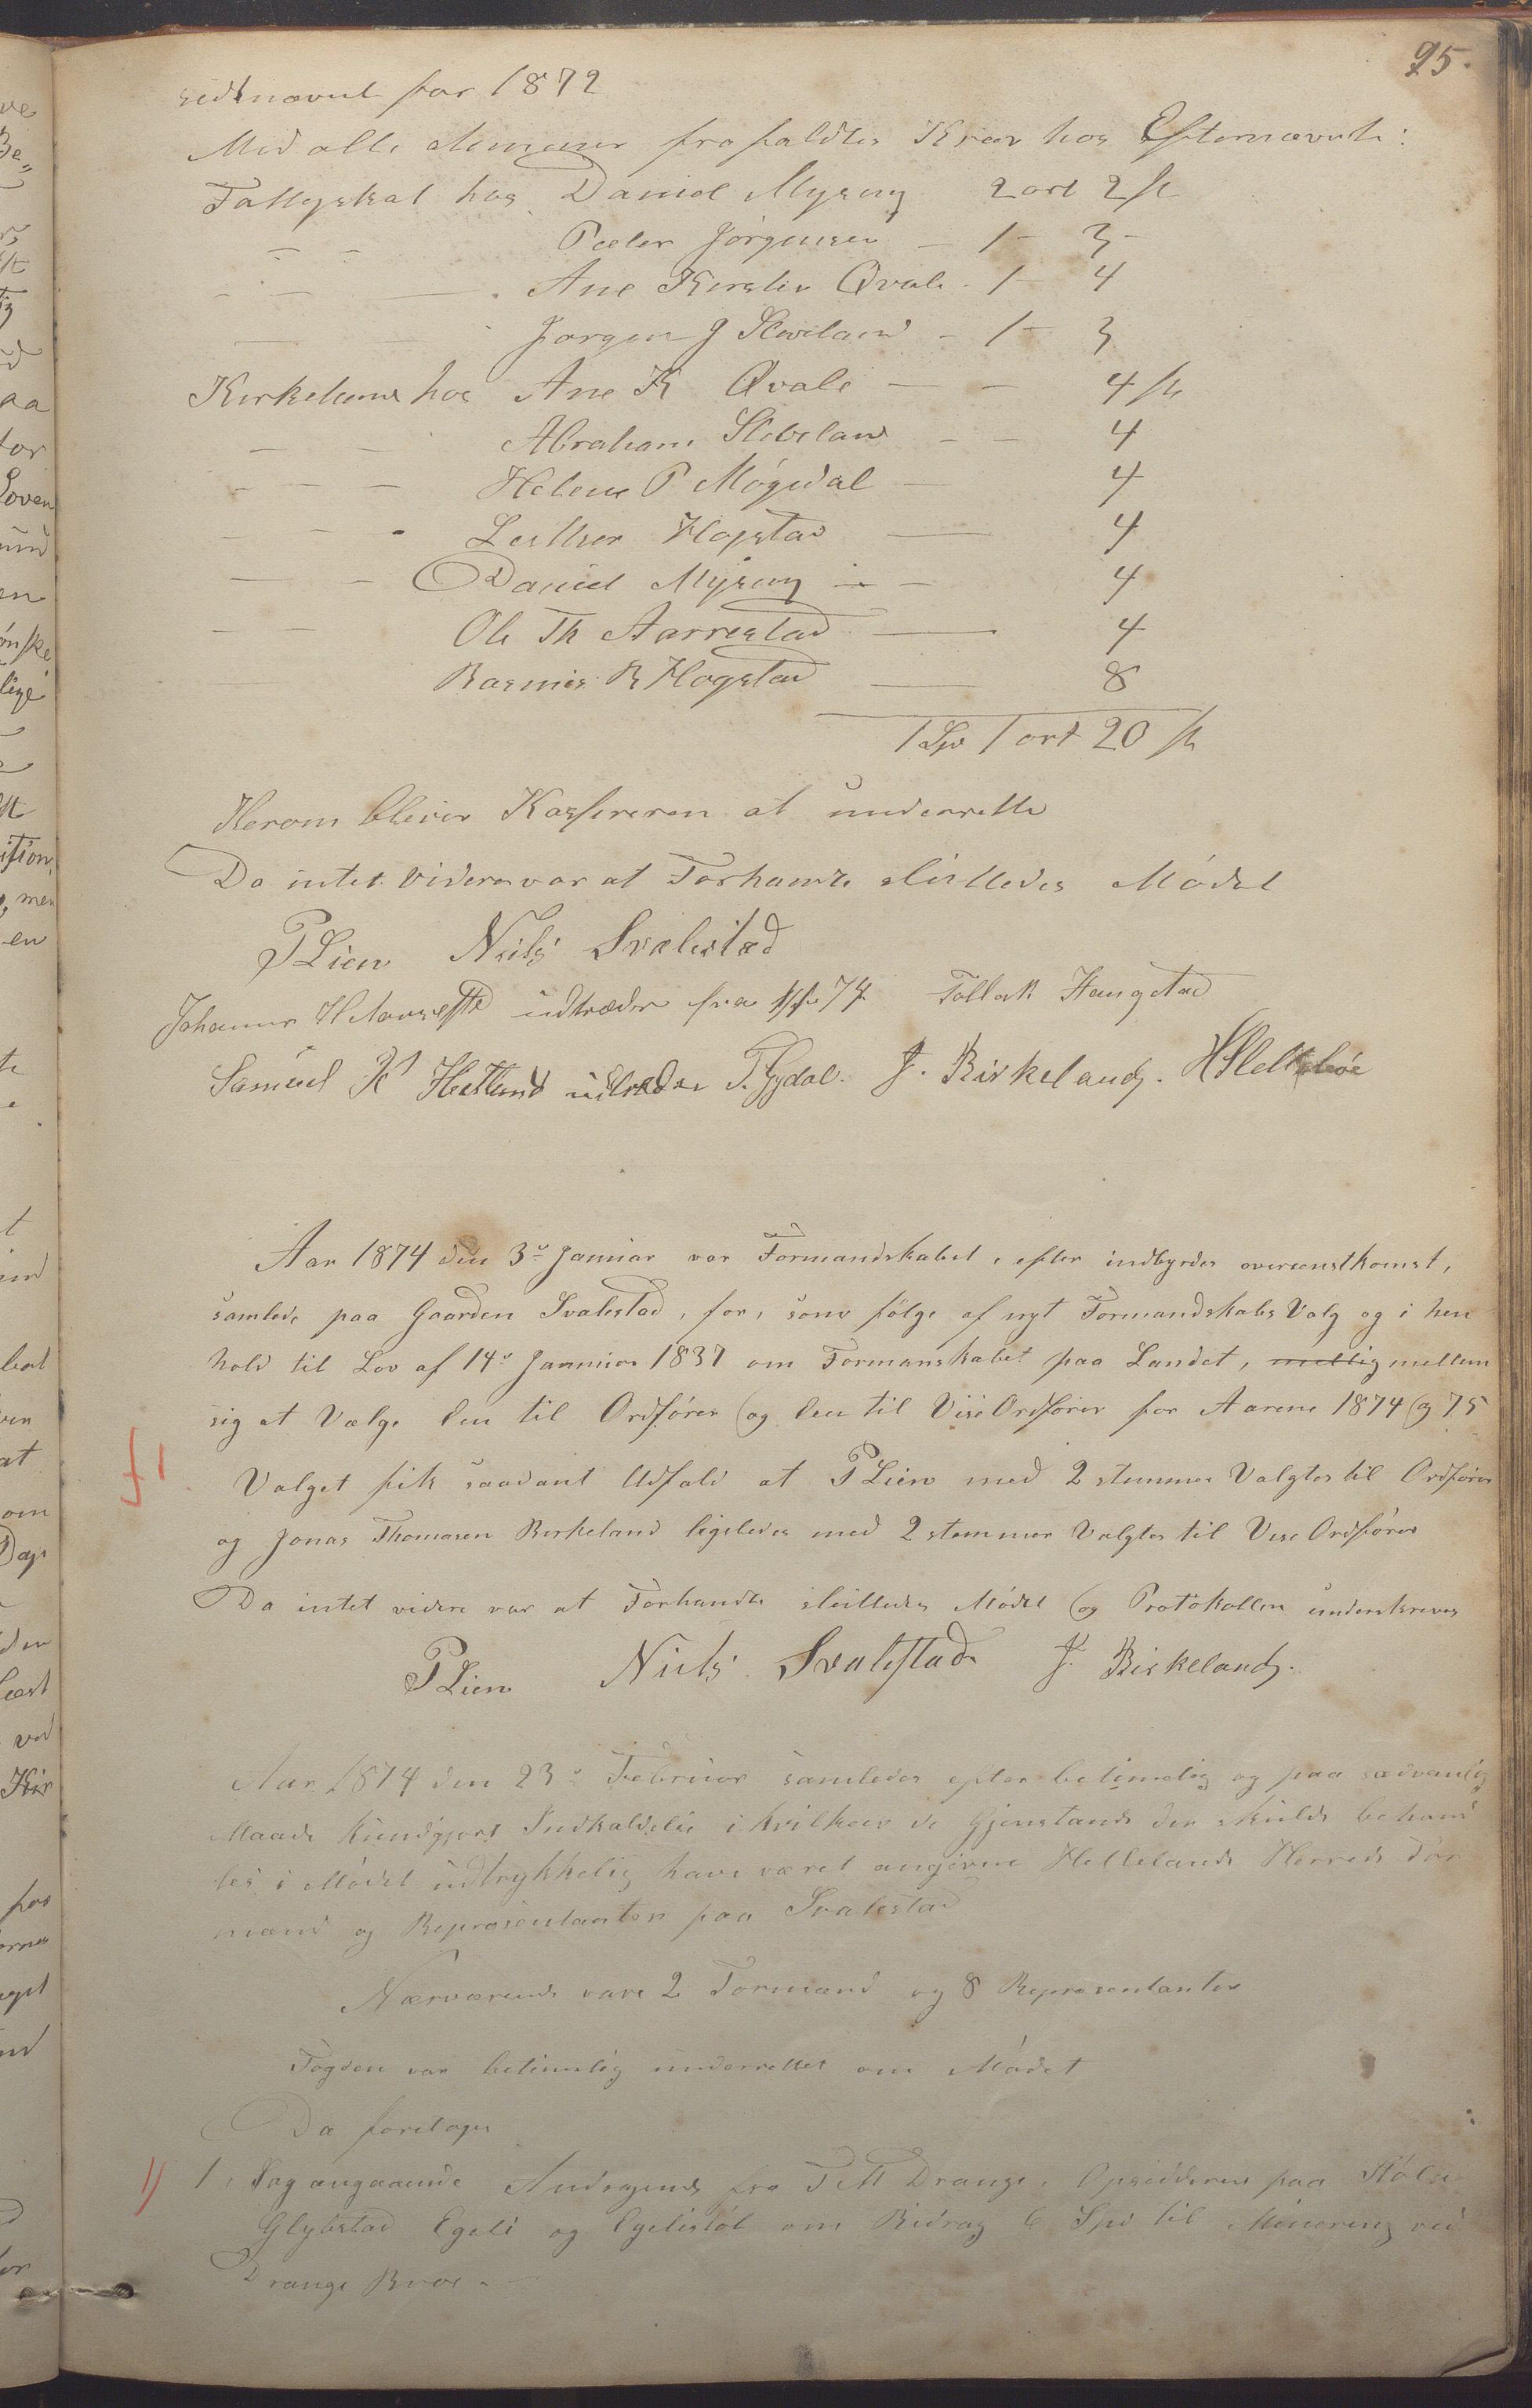 25.
for 1872
Med alle Stemmer frafaldtes Krav hos Efternævnte:
Fattigskat hos Daniel Mysing 2 ort 2 ſk
- - Peder Jørgensen - 1 - 3 -
- - - Ane Kirstin Qvale - 1 - 4
Jørgen J Skoeland - 1 - 3
hos Ane K Qvale - - 4 ſk
- - Abraham - - 4
- - - Helene P Møgedal - 4
- - - Hogstad - 4
- - - Daniel Mysing - - 4
- - Ole Th Aarrestad - 4
- Rasmus R Hogstad - 8
1 Spd 1 ort 20 ſk
Herom bliver Kasſereren at underrette
Da intet videre var at Forhandle sluttedes Mødet
P Lien Niels Svalestad
Johannes udtræder fra 1/1 74 Tollak Haugstad
Samuel K Hetland udtræder T. Gydal. J. Birkeland.
Aar 1874 den 3die Januar var Formandskabet, efter indbyrdes overenstkomst,
samlede paa Gaarden Svalestad, for, som følge af nyt Formandskabs Valg og i hen
hold til Lov af 14de Januar 1837 om Formanskabet paa Landet, mellem
sig at Vælge Een til Ordfører og Een til Vise Ordfører for Aarene 1874 og 75
f1
Valget fik saadant Udfald at P Lien med 2 stemmer Valgtes til Ordfører
og Jonas Thomasen Birkeland ligeledes med 2 stemmer Valgtes til Vise Ordfører
Da intet videre var at Forhandle sluttedes Mødet og Protokollen underskreves
P Lien Niels Svalestad J. Birkeland.
Aar 1874 den 23de Februar samledes efter betimelig og paa sædvanlig
Maade Kundgjort Indkaldelse i hvilken de Gjenstande der skulde behand
les i Mødet udtrykkelig have været angivne Hellelands Herreds For
mænd og Repræsentanter paa Svalestad
Nærværende vare 2 Formænd og 8 Repræsentanter
Fogden var betimelig underrettet om Mødet
Da foretoges
1) 1, Sag angaaende Andragende fra T M Drange, Opsidderne paa
Glypstad Egeli og Egelistøl om Bidrag 6 Spd til Minering ved
Drange Broe.